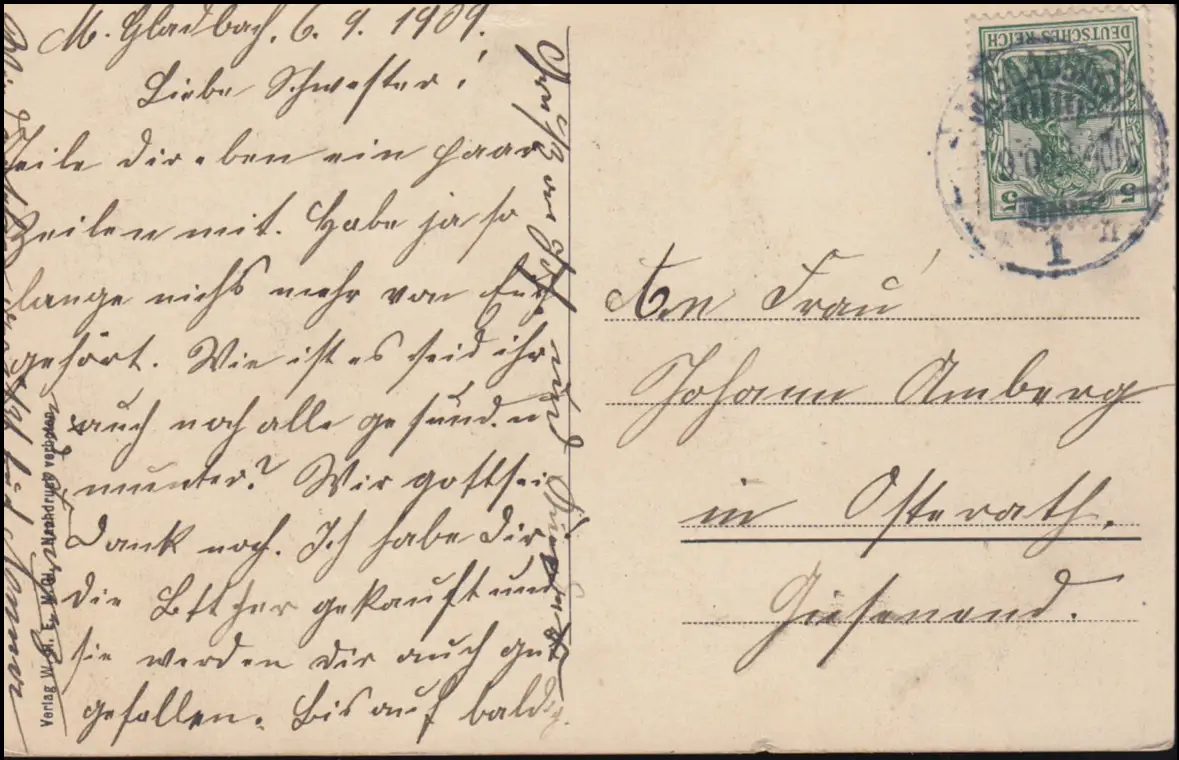 M. Gladbach, 6. 9. 1909.
Liebe Schwester!
Teile dir eben ein paar
Zeilen mit. Habe ja so
lange nichs mehr von Euch
gehört. Wie ist es seid ihr
auch noch alle gesund u
munter? Wir gottsei
Dank noch. Ich habe Dir
die gekauft und
sie werden dir auch gut
gefallen. Bis auf baldig.
und
Verlag W. M. E. Nachdruck verboten
DEUTSCHES REICH
5 5
1 n
An Frau
Johann Amberg
in Osterath.
Giesenend.